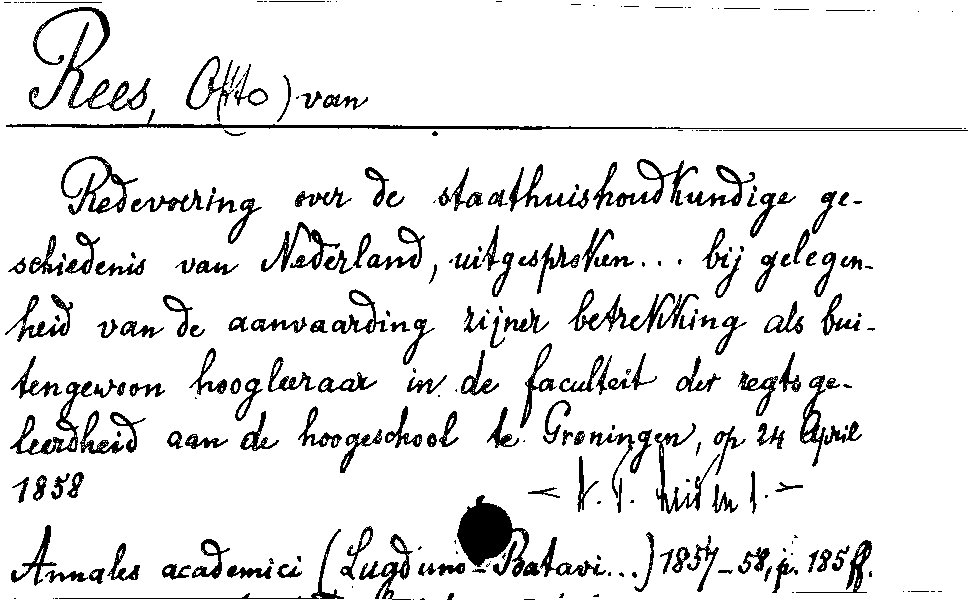 Rees, O(tto) van
Redevoering over de staathuishoudkundige ge-
schiedenis van Nederland, uitgesproken... bij gelegen-
heid van de aanvaarding zijner betrekking als bui-
tengewoon hoogleeraar in de faculteit der regtsge-
leerdheid aan de hoogeschool te Groningen, op 24 April
1858
Annales academici (Lugduno-Batavi...) 1857-58, p. 185 ff.